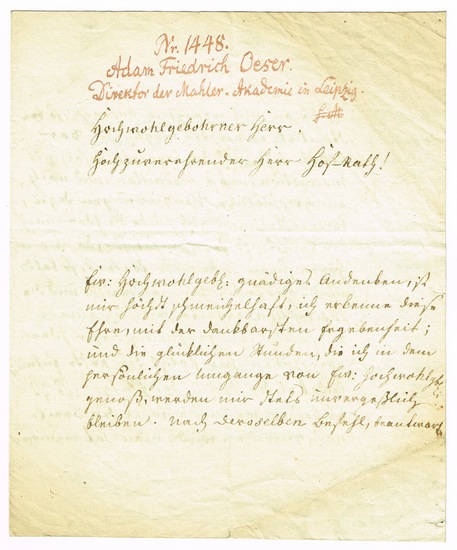 Nr. 1448.
Adam Friedrich Oeser.
Direktor der Mahler-Akademie in Leipzig.
Hochwohlgebohrner Herr,
Höchzuverehrender Herr Hof-Rath!
Ew: Hochwohlgebh: gnädiges Andenken, ist
mir höchst schmeichelhaft, ich erkenne diese
Ehre, mit der dankbarsten Ergebenheit;
und die glücklichen Stunden, die ich in dem
persönlichen Umgange von Ew: Hochwohlgb:
genoß, werden mir stets unvergeßlich
bleiben. Nach Deroselben Befehl, beantwort